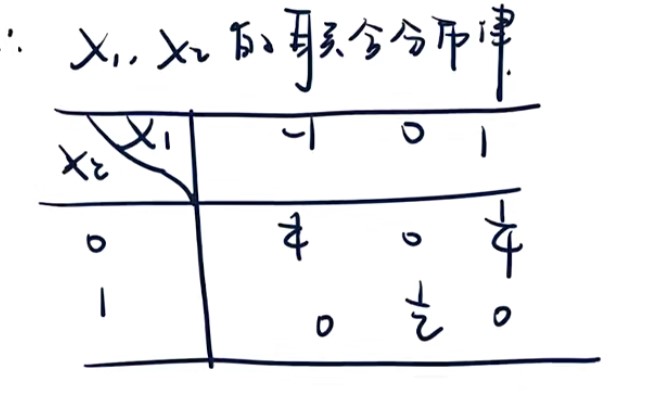 ∴ X₁, X₂ 的联合分布律.
X₁
X₂ -1 0 1
0 1/4 0 1/4
1 0 1/2 0